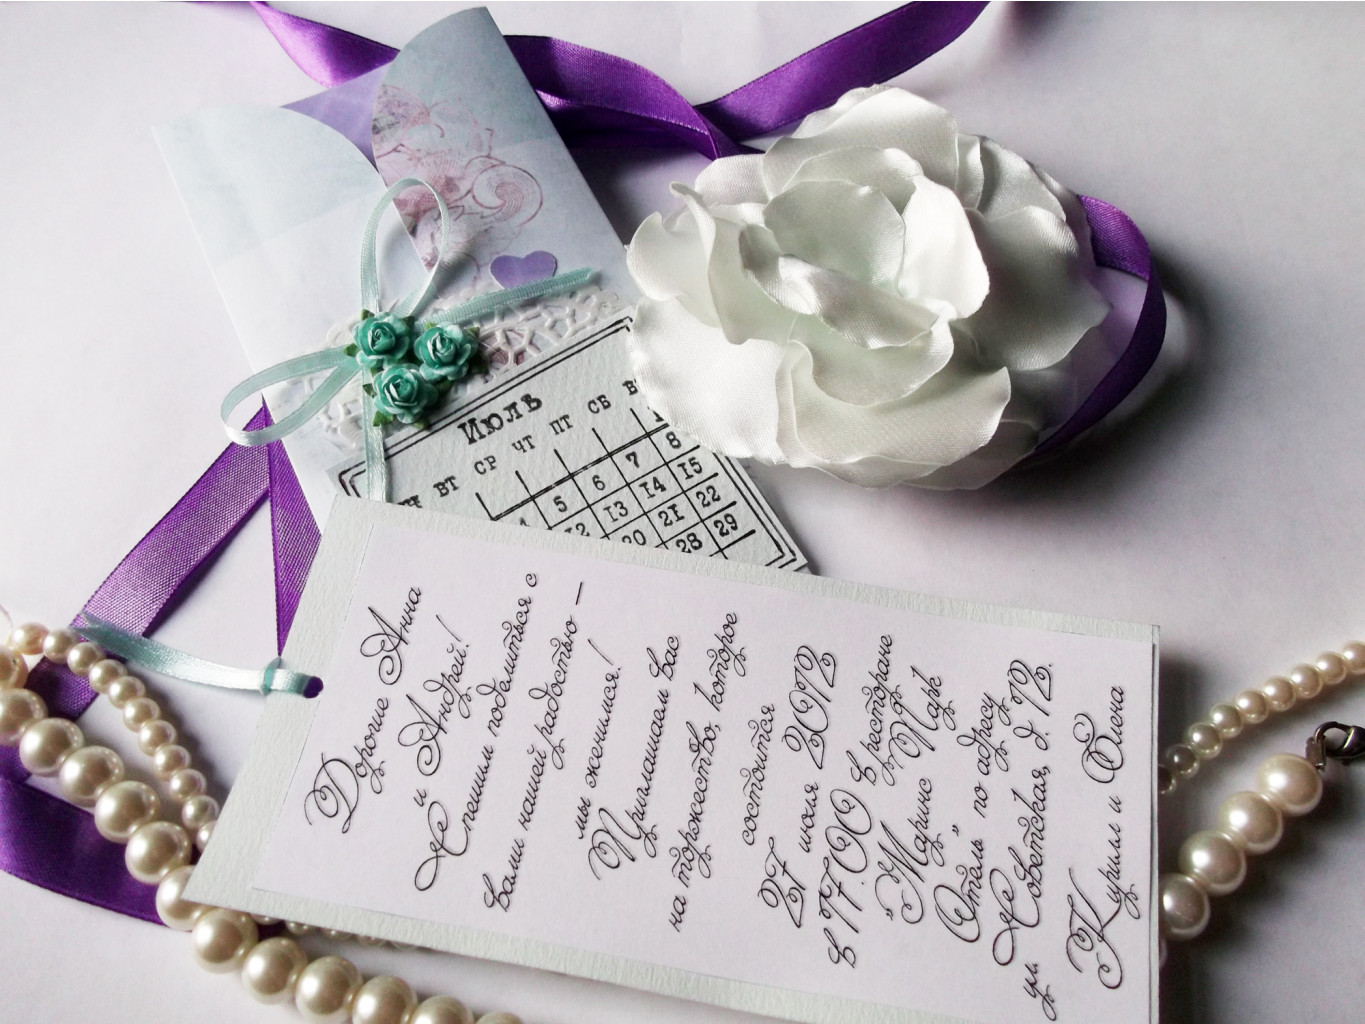 Июль
ВТ СР ЧТ ПТ СБ
1
5 6 7 8
12 13 14 15
20 21 22
28 29
Дорогие Анна
и Андрей!
Спешим поделиться с
вами нашей радостью –
мы женимся!
Приглашаем вас
на торжество, которое
состоится
27 июля 2012
в 17.00 в ресторане
"Маринс Парк
Отель" по адресу
ул. Советская, д. 12.
Кирилл и Елена